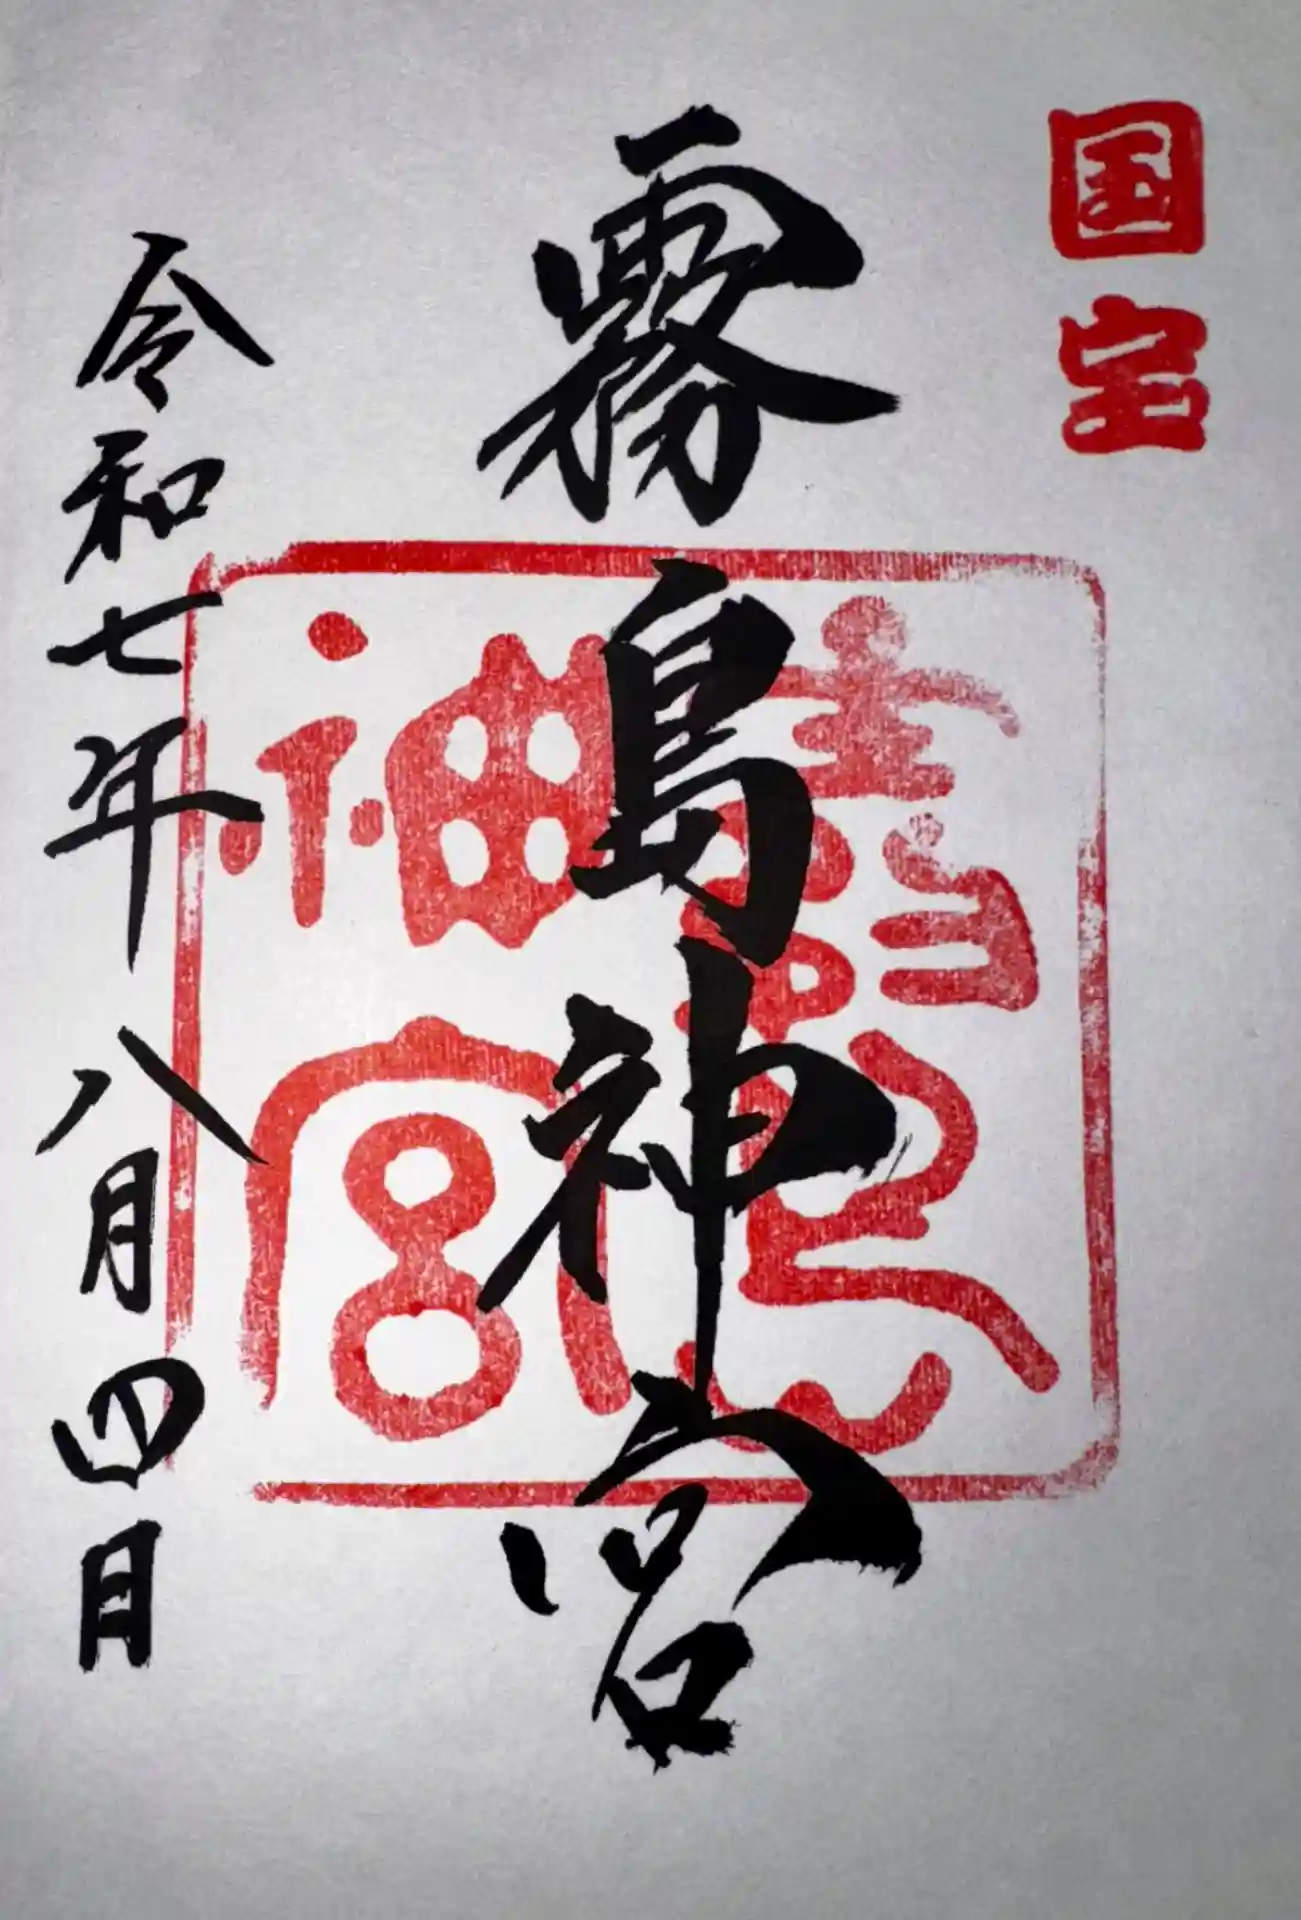 国宝
霧島神宮
霧島神宮
令和七年八月四日